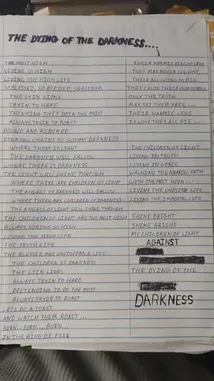 THE DYING OF THE DARKNESS....
THE MOST HIGH
RIDING SO HIGH
LIVING THE HIGH LIFE
SO BLESSED, SO BLESSED, OBSESSED
THE LYIN LIONS
TRYIN TO HARD
THINKING THEY BEEN THE MOST
ALWAYS TRYIN TO ROAST
DOUBLE AND
ETERNAL CHAINS OF GLOOMY DARKNESS
WHERE THERE IS LIGHT
THE DARKNESS WILL FOLLOW
WHERE THERE IS DARKNESS
THE LIGHT WILL SHINE THROUGH
WHERE THERE ARE CHILDREN OF LIGHT
THE ANGELS OF DARKNESS WILL FOLLOW
WHERE THERE ARE CHILDREN OF DARKNESS
THE ANGELS OF LIGHT WILL SHINE THROUGH
THE CHILDREN OF LIGHT ARE THE MOST HIGH
ALWAYS RIDING SO HIGH
LIVING THE HIGH LIFE
THE TRUTH LIFE
THE BLESSED AND UNSTOPPABLE LIFE
THE CHILDREN OF DARKNESS
THE LYIN LIONS
ALWAYS TRYIN TO HARD
PRETENDING TO BE THE MOST
ALWAYS TRYIN TO ROAST
LETS DO A TOAST
AND WATCH THEM ROAST ...
BURN.. BURN... BURN...
IN THE RING OF FIRE
THEIR KARMIC
THEY
THEIR
THEY
ONLY THE TRUTH
MAY SET THEM FREE ...
THEIR KARMIC LIES
IS WHY THEY ALL DIE ...
THE CHILDREN OF LIGHT
LIVING IN TRUTH
LIVING IN GRACE
WALKING THE NARROW PATH
WITH THE MOST HIGH ...
LIVING THE UNDYING LIFE
LIVING THE IMMORTAL LIFE
SHINE BRIGHT
SHINE BRIGHT
MY CHILDREN OF LIGHT
AGAINST
THE DYING OF THE
DARKNESS